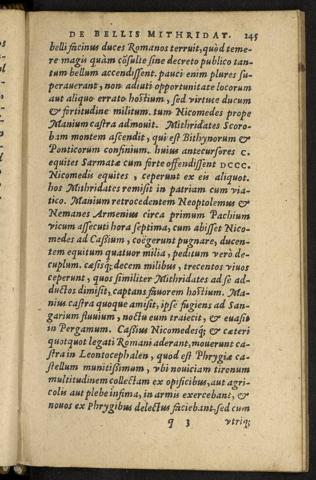 DE BELLIS MITHRIDAT. 245
belli facinus duces Romanos terruit, quòd teme-
re magis quàm cōsulte sine decreto publico tan-
tum bellum accendissent. pauci enim plures su-
perauerant, non adiuti opportunitate locorum
aut aliquo errato hostium, sed virtute ducum
& fortitudine militum. tum Nicomedes prope
Manium castra admouit. Mithridates Scoro-
bam montem ascendit, qui est Bithynorum &
Ponticorum confinium. huius antecursores C.
equites Sarmatæ cum forte offendissent DCCC.
Nicomedis equites, ceperunt ex eis aliquot.
hos Mithridates remisit in patriam cum via-
tico. Manium retrocedentem Neoptolemus &
Nemanes Armenius circa primum Pachium
vicum assecuti hora septima, cum abisset Nico-
medes ad Cassium, coëgerunt pugnare, ducen-
tem equitum quatuor milia, peditum verò de-
cuplum. cæsisq; decem milibus, trecentos viuos
ceperunt, quos similiter Mithridates ad se ad-
ductos dimisit, captans fauorem hostium. Ma-
nius castra quoque amisit, ipse fugiens ad San-
garium fluuium, noctu eum traiecit, & euasit
in Pergamum. Cassius Nicomedesq; & cæteri
quotquot legati Romani aderant, mouerunt ca-
stra in Leontocephalen, quod est Phrygiæ ca-
stellum munitissimum, vbi nouiciam tironum
multitudinem collectam ex opificibus, aut agri-
colis aut plebe infima, in armis exercebant, &
nouos ex Phrygibus delectus faciebant. sed cum
q 3 vtriq;